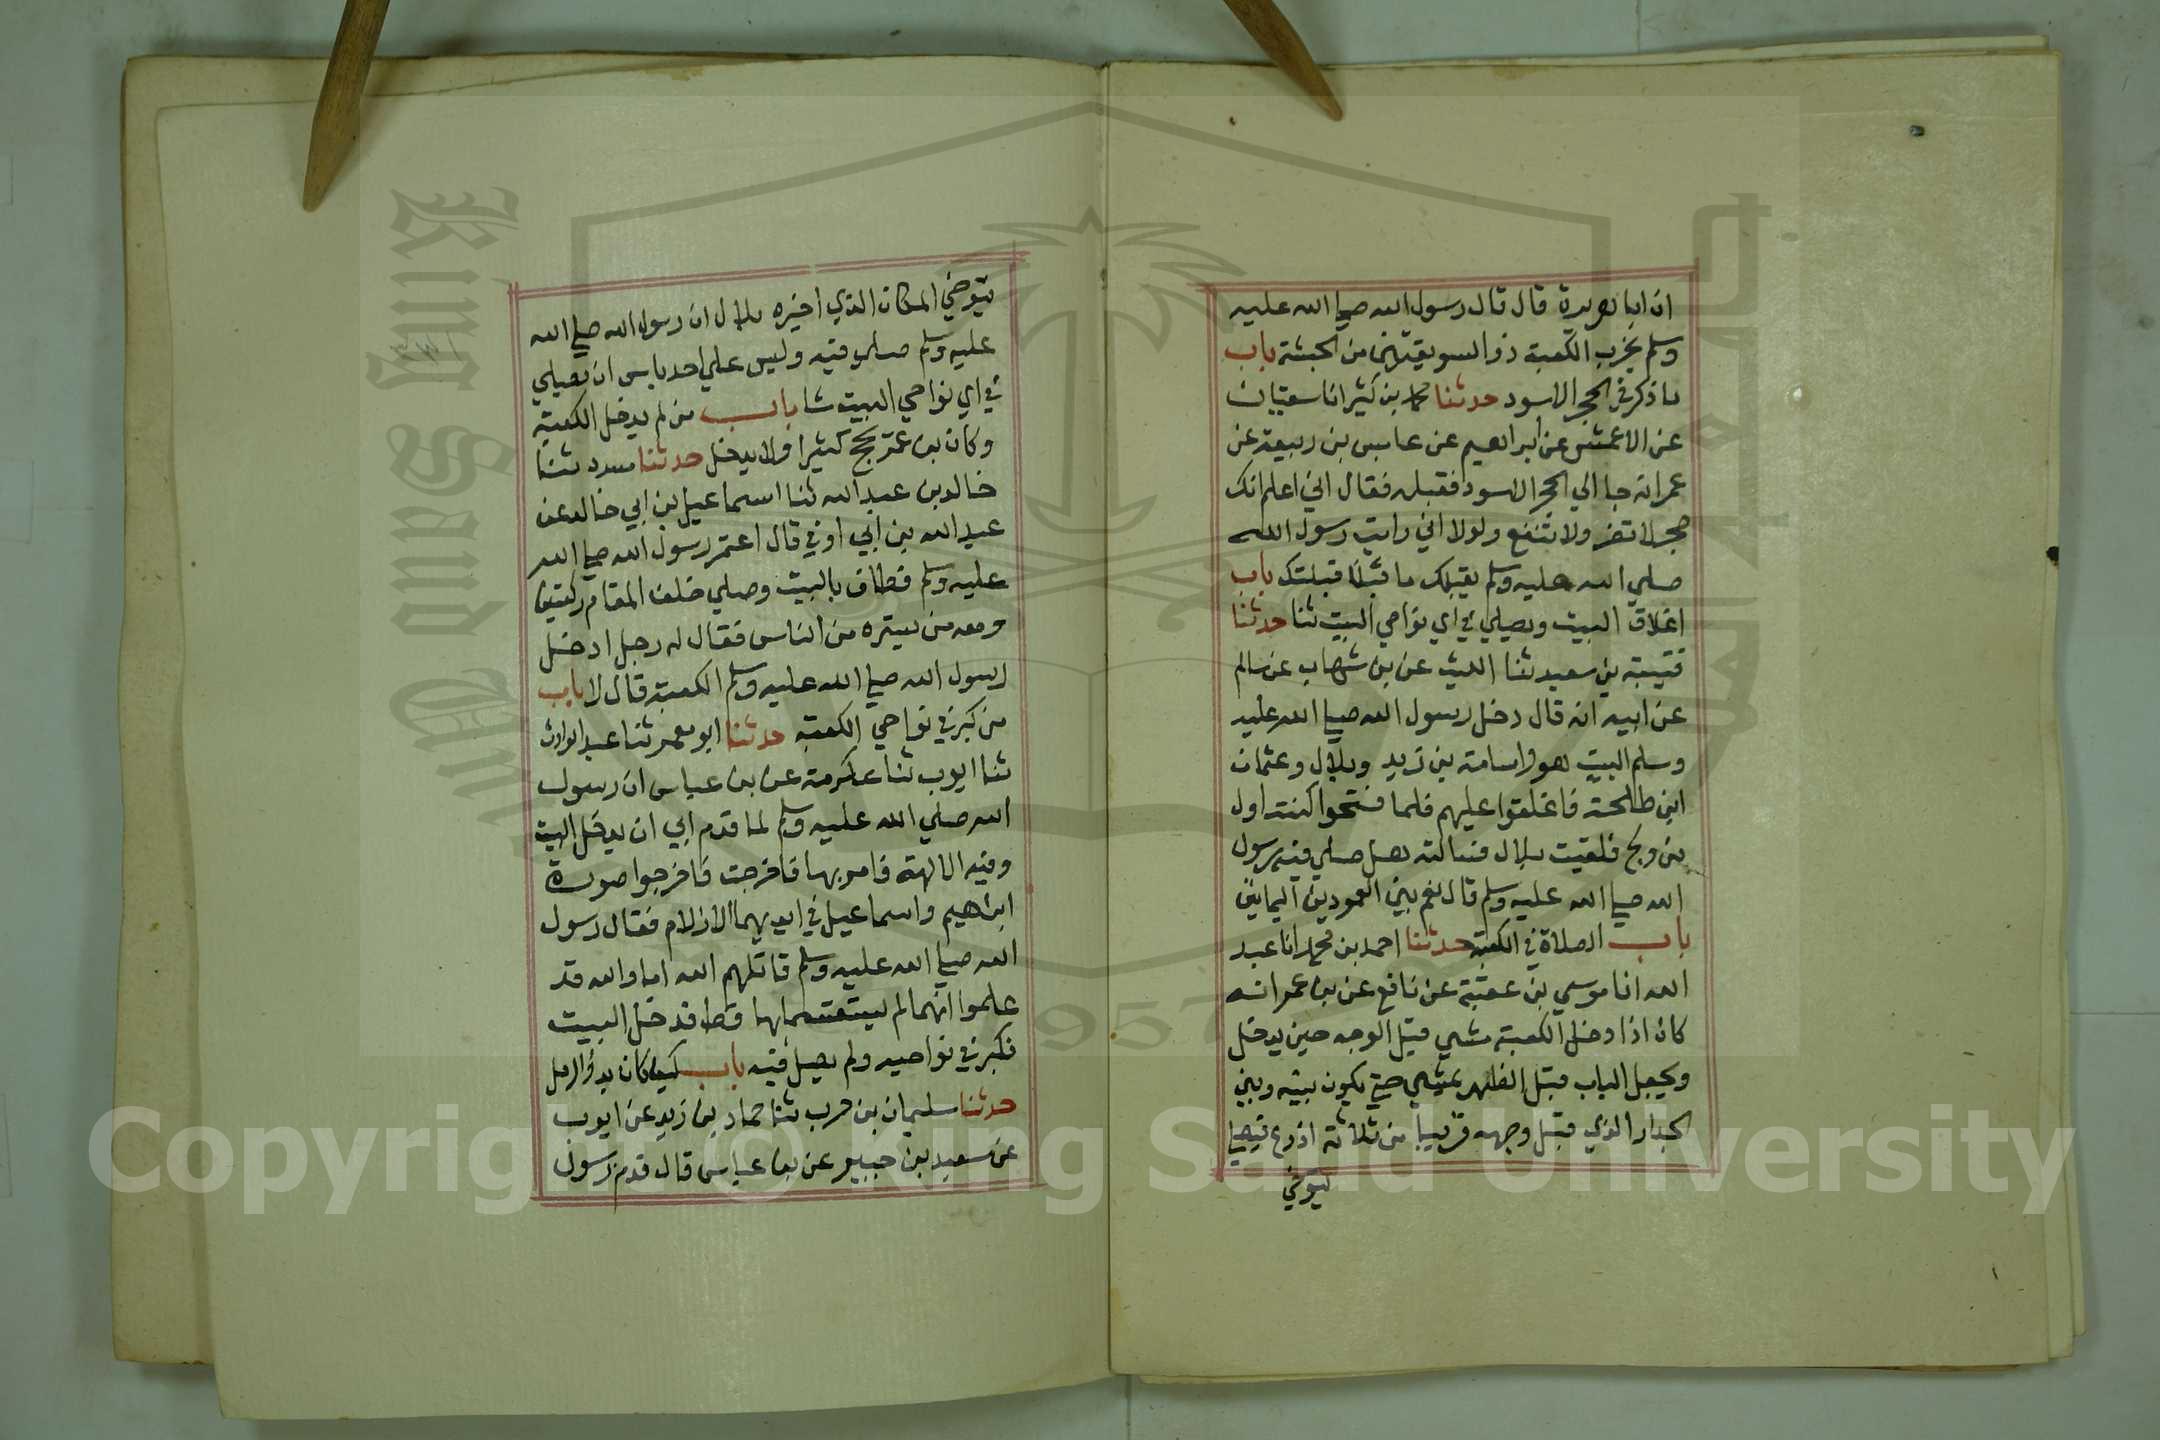 ان ابا هريرة قال قال رسول الله صلي الله عليه
وسلم يخرب الكعبة ذو السويقتين من الحبشة باب
ما ذكر في الحجر الاسود حدثنا محمد بن كثير انا سفيان
عن الاعمش عن ابراهيم عن عابس بن ربيعة عن
عمر انه جا الي الحجر الاسود فقبله فقال اني اعلم انك
حجر لا تضر ولا تنفع ولولا اني رايت رسول الله
صلي الله عليه وسلم يقبلك ما قبلتك باب
اغلاق البيت ويصلي في اي نواحي البيت شا حدثنا
قتيبة بن سعيد ثنا الليث عن بن شهاب عن سالم
عن ابيه انه قال دخل رسول الله صلي الله عليه
وسلم البيت هو واسامة بن زيد وبلال وعثمان
ابن طلحة فاغلقوا عليهم فلما فتحوا كنت اول
من ولج فلقيت بلال فسالته هل صلي فيه رسول
الله صلي الله عليه وسلم قال نعم بين العمودين اليمانين
باب الصلاة في الكعبة حدثنا احمد بن محمد انا عبد
الله انا موسي بن عقبة عن نافع عن بن عمر انه
كان اذا دخل الكعبة مشي قبل الوجه حين يدخل
ويجعل الباب قبل الظهر يمشي حتي يكون بينه وبين
الجدار الذي قبل وجهه قريبا من ثلاثة اذرع فيصلي
يتوخي
يتوخي المكان الذي اخبره بلال ان رسول الله صلي الله
عليه وسلم صلي فيه وليس علي احد باس ان يصلي
في اي نواحي البيت شا باب من لم يدخل الكعبة
وكان بن عمر يحج كثيرا ولا يدخل حدثنا مسدد ثنا
خالد بن عبد الله ثنا اسماعيل بن ابي خالد عن
عبد الله بن ابي اوفي قال اعتمر رسول الله صلي الله
عليه وسلم فطاف بالبيت وصلي خلف المقام ركعتين
ومعه من يستره من الناس فقال له رجل ادخل
رسول الله صلي الله عليه وسلم الكعبة قال لا باب
من كبر في نواحي الكعبة حدثنا ابو معمر ثنا عبد الوارث
ثنا ايوب ثنا عكرمة عن بن عباس ان رسول
الله صلي الله عليه وسلم لما قدم ابي ان يدخل البيت
وفيه الالهة فامر بها فاخرجت فاخرجوا صورة
ابراهيم واسماعيل في ايديهما الازلام فقال رسول
الله صلي الله عليه وسلم قاتلهم الله اما والله قد
علموا انهما لم يستقسما بها قط فدخل البيت
فكبر في نواحيه ولم يصل فيه باب كيف كان بدؤ الرمل
حدثنا سليمان بن حرب ثنا حماد بن زيد عن ايوب
عن سعيد بن جبير عن بن عباس قال قدم رسول
King Saud University
1957
Copyright © King Saud University